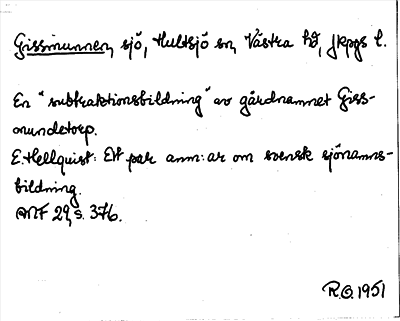 Gissmunnen, sjö, Hultsjö sn, Västra hd, Jkpgs l.
En "subtraktionsbildning" av gårdnamnet Giss-
mundetorp.
E. Hellquist: Ett par anm:ar om svensk sjönamns-
bildning.
ANF 29, s. 376.
R.O. 1951